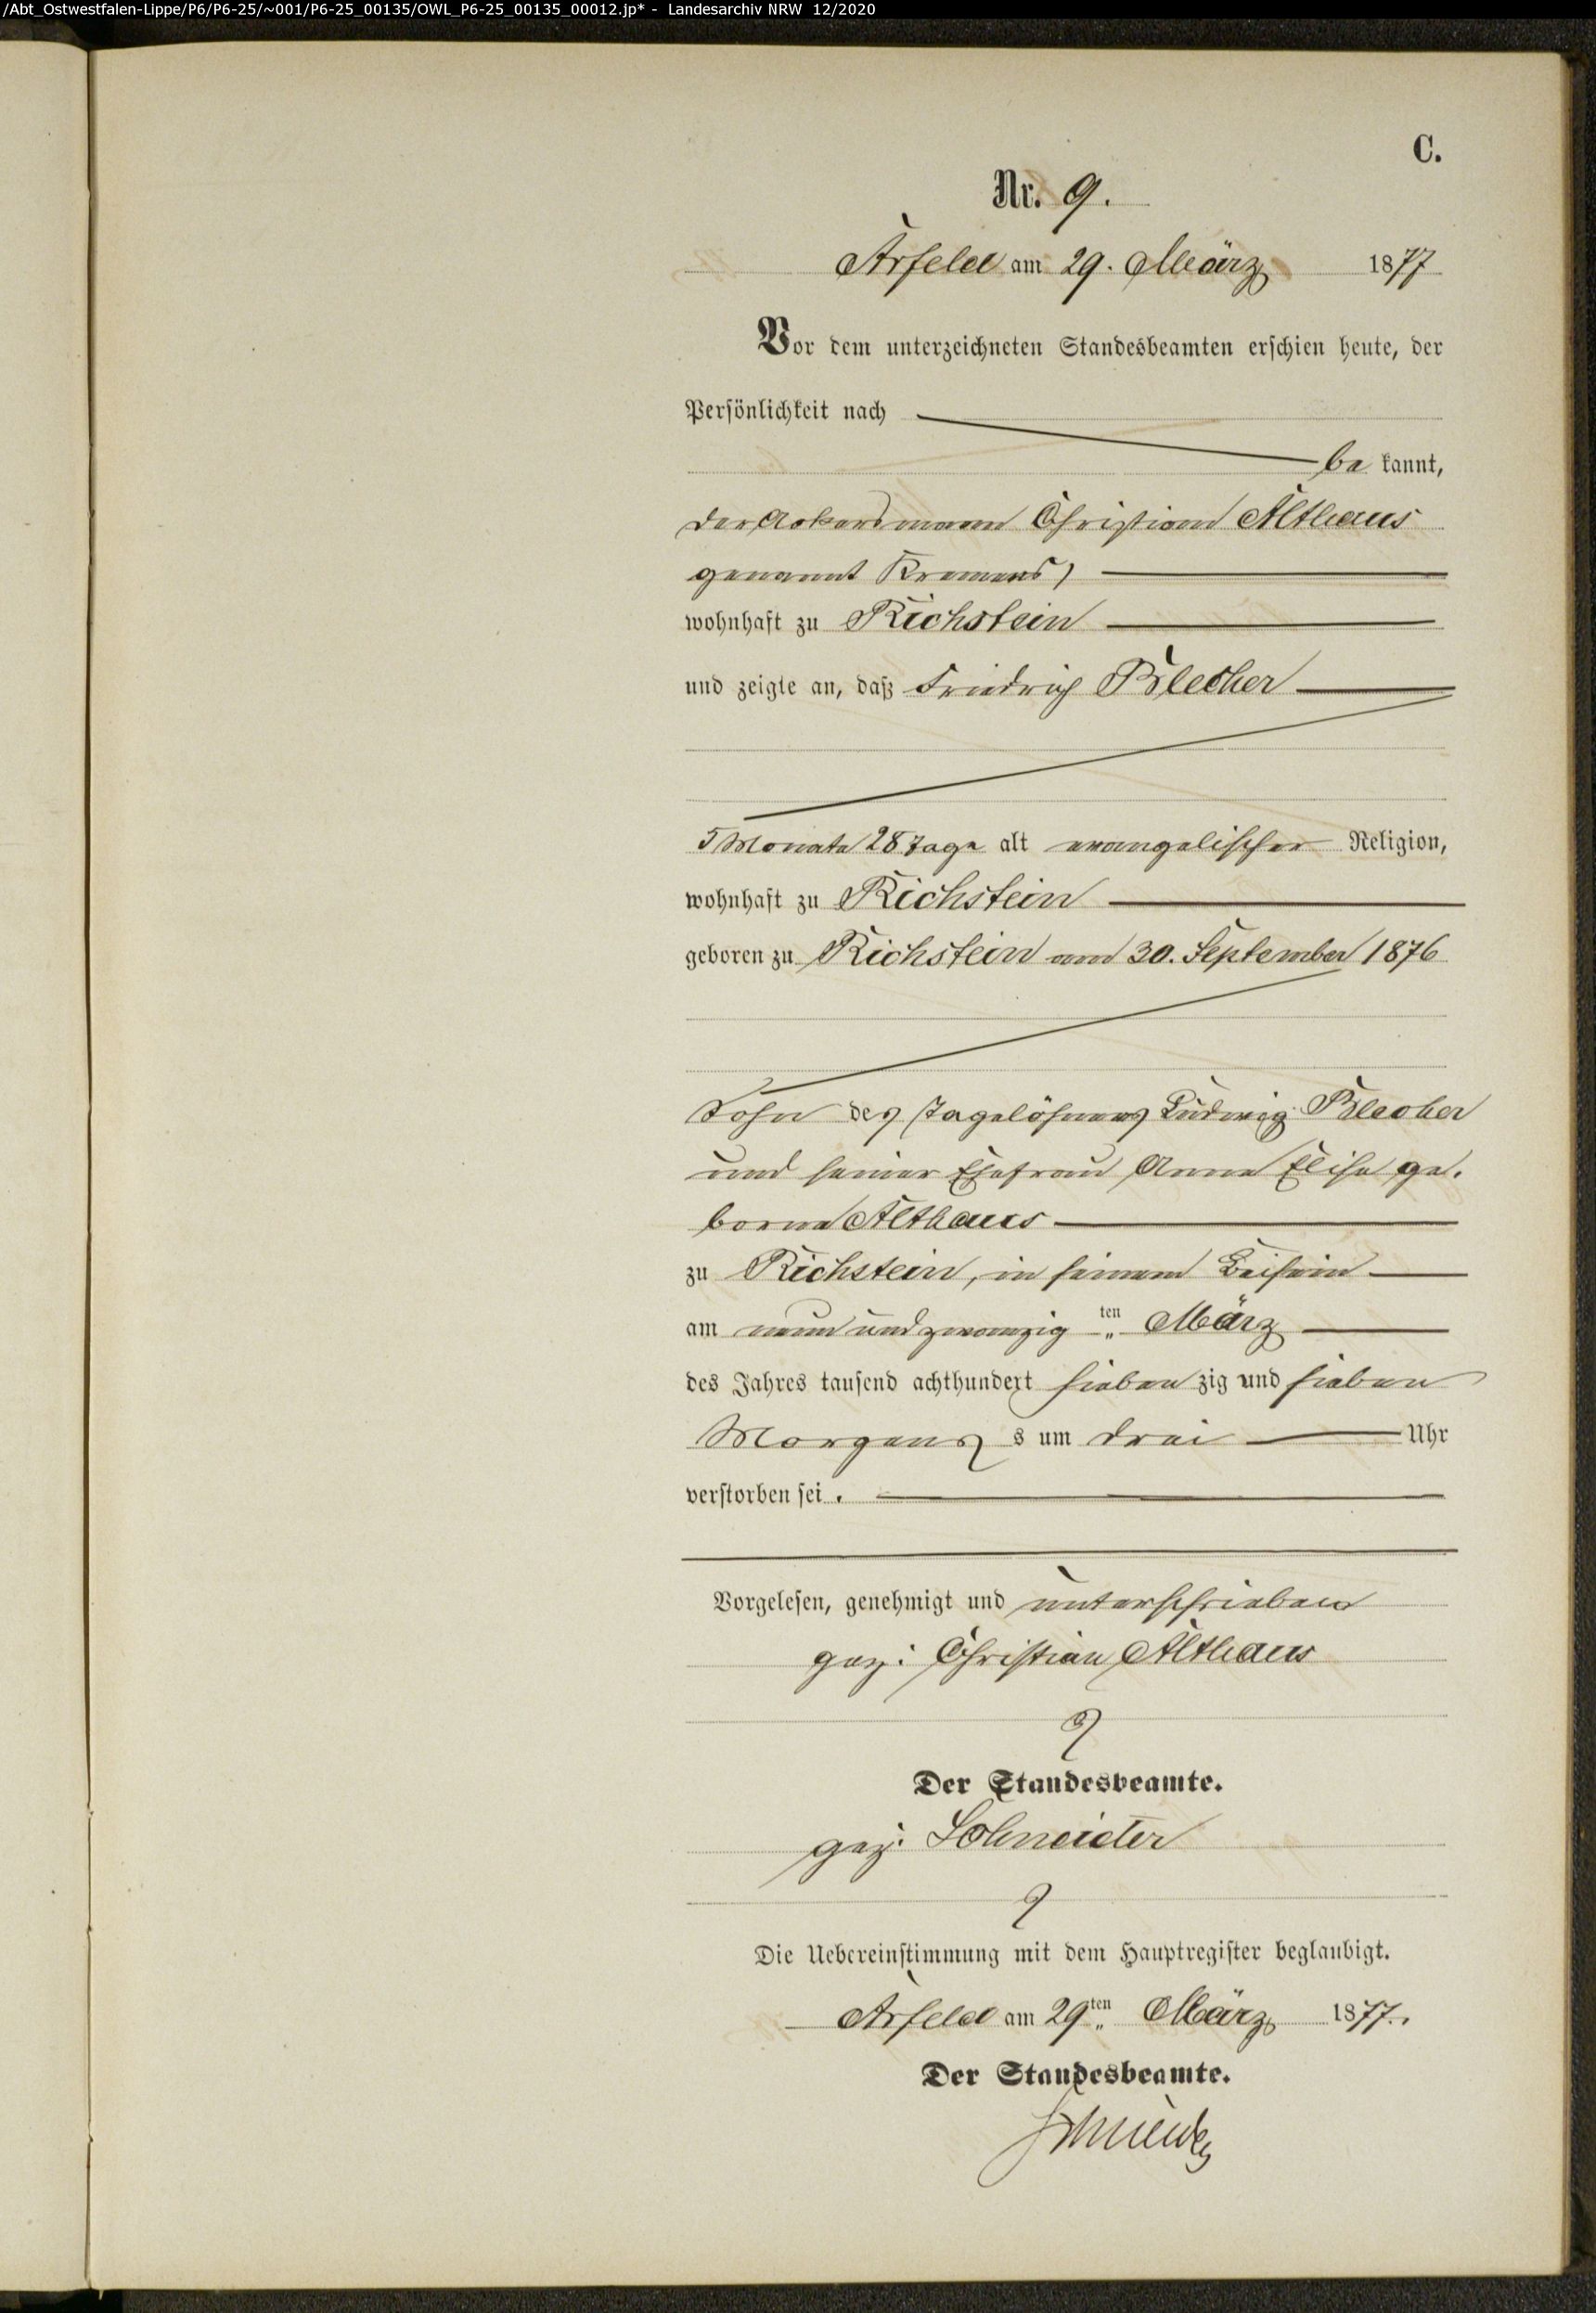 /Abt_Ostwestfalen-Lippe/P6/P6-25/~001/P6-25_00135/OWL_P6-25_00135_00012.jp* - Landesarchiv NRW 12/2020
C.
Nr. 9.
Arfeld am 29. März 1877
Vor dem unterzeichneten Standesbeamten erschien heute, der
Persönlichkeit nach
be kannt,
der Ackersmann Christian Althaus
genannt
wohnhaft zu Richstein
und zeigte an, daß Friedrich Blecher
5 Monate 28 Tage alt evangelischer Religion,
wohnhaft zu Richstein
geboren zu Richstein am 30. September 1876
Sohn des Tagelöhners Ludwig Blecher
und seiner Ehefrau Anna Elise ge-
borne Althaus
zu Richstein, in seinem Beisein
am neun und zwanzig ten März
des Jahres tausend achthundert sieben zig und sieben
Morgens s um drei Uhr
verstorben sei.
Vorgelesen, genehmigt und unterschrieben
gez: Christian Althaus
Der Standesbeamte.
gez: Schneider
Die Uebereinstimmung mit dem Hauptregister beglaubigt.
Arfeld am 29ten März 1877.
Der Standesbeamte.
Schneider